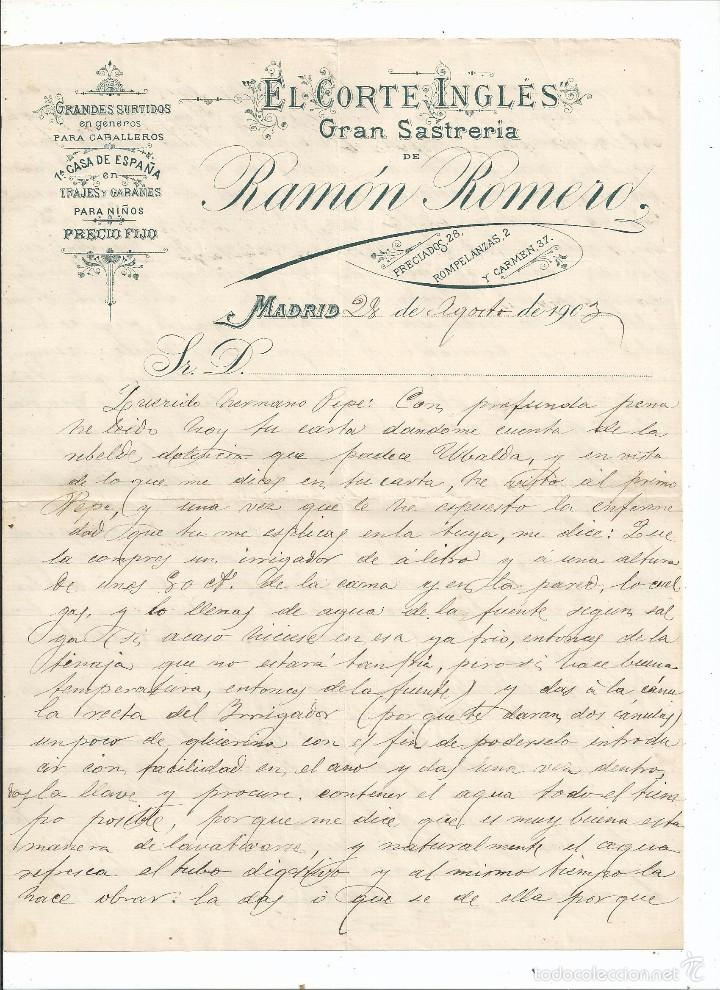 GRANDES SURTIDOS
en géneros
PARA CABALLEROS
1ª CASA DE ESPAÑA
en
TRAJES Y GABANES
PARA NIÑOS
PRECIO FIJO
"EL CORTE INGLÉS"
Gran Sastrería
DE
Ramón Romero
PRECIADOS, 28,
ROMPELANZAS, 2
Y CARMEN, 37.
MADRID 28 de Agosto de 1903
Sr. D.
Querido hermano Pepe: Con profunda pena
he leido hoy tu carta dandome cuenta de la
rebelde dolencia que padece Ubalda, y en vista
de lo que me dices en tu carta, he visto al primo
Pepe, y una vez que le he espuesto la enferme
dad que tu me esplicas en la tuya, me dice: Que
la compres un irrigador de á litro y á una altura
de unos 80 de la cama y en la pared, lo cuel
gas, y lo llenas de agua de la fuente segun sal
ga (si acaso hiciese en esa ya frio, entonces de la
tinaja que no estará tan fria, pero si hace buena
temperatura, entonces de la fuente) y das á la cánu
la recta del Irrigador (porque te daran dos cánulas)
un poco de glicerina con el fin de poderselo introdu
cir con facilidad en el ano y das una vez dentro,
das la llave y procure contener el agua todo el tiem
po posible, porque me dice que es muy buena esta
manera de lavativarse, y naturalmente el agua
refresca el tubo digestivo y al mismo tiempo la
hace obrar: la das ó que se de ella porque
todocoleccion.net